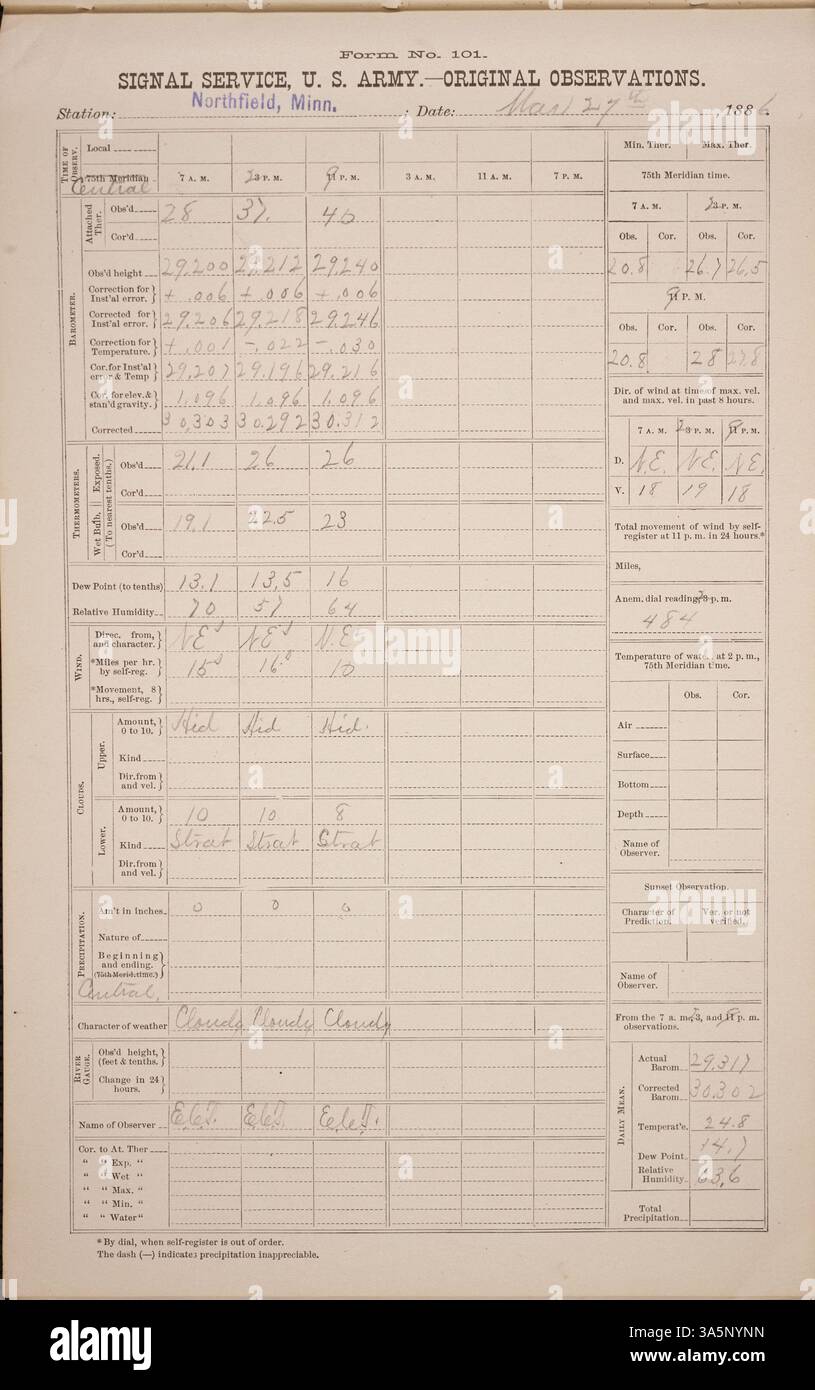 Form No. 101.
SIGNAL SERVICE, U. S. ARMY.—ORIGINAL OBSERVATIONS.
Station: Northfield, Minn. ; Date: Mar 27th, 1886.
TIME OF OBSERV.
Local
75th Meridian Central 7 A. M. 2 3 P. M. 9 11 P. M. 3 A. M. 11 A. M. 7 P. M.
BAROMETER.
Attached Ther.
Obs'd 28 37. 40
Cor'd
Obs'd height 29.200 29.212 29.240
Correction for Inst'al error. + .006 + .006 + .006
Corrected for Inst'al error. 29.206 29.218 29.246
Correction for Temperature. + .001 -.022 -.030
Cor. for Inst'al error & Temp 29.207 29.196 29.216
Cor. for elev. & stan'd gravity. 1.096 1.096 1.096
Corrected 30.303 30.292 30.312
THERMOMETERS.
Wet Bulb. || Exposed.
(To nearest tenths.)
Obs'd 21.1 26 26
Cor'd
Obs'd 19.1 22.5 23
Cor'd
Dew Point (to tenths) 13.1 13.5 16
Relative Humidity 70 57 64
WIND.
Direc. from, and character. NE NE N.E
*Miles per hr. by self-reg. 15 16 10
*Movement, 8 hrs., self-reg.
CLOUDS.
Upper.
Amount, 0 to 10. Hid Hid Hid.
Kind
Dir. from and vel.
Lower.
Amount, 0 to 10. 10 10 8
Kind Strat Strat Strat
Dir. from and vel.
PRECIPITATION.
Am't in inches. 0 0 0
Nature of
Beginning and ending. (75th Merid. time.)
Central.
Character of weather Cloudy Cloudy Cloudy
RIVER GAUGE.
Obs'd height, (feet & tenths.
Change in 24 hours.
Name of Observer
Cor. to At. Ther
“ “ Exp. “
“ “ Wet “
“ “ Max. “
“ “ Min. “
“ “ Water“
* By dial, when self-register is out of order.
The dash (—) indicates precipitation inappreciable.
Min. Ther. Max. Ther.
75th Meridian time.
7 A. M. 2 3 P. M.
Obs. Cor. Obs. Cor.
20.8 26.7 26.5
9 11 P. M.
Obs. Cor. Obs. Cor.
20.8 28 27.8
Dir. of wind at time of max. vel. and max. vel. in past 8 hours.
7 A. M. 2 3 P. M. 9 11 P. M.
D. N.E. N.E. N.E.
V. 18 19 18
Total movement of wind by self-register at 11 p. m. in 24 hours.*
Miles,
Anem. dial reading, 2 3 p. m.
484
Temperature of water at 2 p. m., 75th Meridian time.
Obs. Cor.
Air
Surface
Bottom
Depth
Name of Observer.
Sunset Observation.
Character of Prediction. Ver. or not verified.
Name of Observer.
From the 7 a. m., 2 3, and 9 11 p. m. observations.
DAILY MEAN.
Actual Barom. 29.317
Corrected Barom. 30.302
Temperat'e. 24.8
Dew Point. 14.7
Relative Humidity. 63.6
Total Precipitation.
alamy
Image ID: 3A5NYNN
www.alamy.com